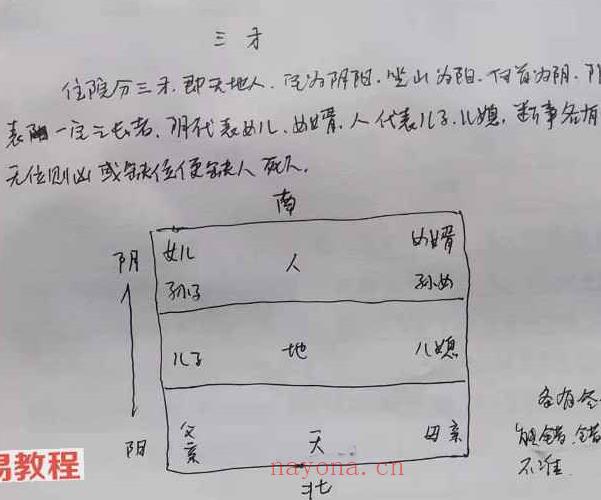 三才
住院分三才，即天地人，宅为阴阳，坐山为阳，向首为阴，阳
表阳一宅之长者，阴代表女儿、女婿，人代表儿子、儿媳，断事各有
无位则凶或缺位便缺人死人。
南
阴 女儿 人 女婿
孙子 孙女
儿子 地 儿媳
阳 父亲 天 母亲
北
各有
错，错
不准
易教程
nayona.cn